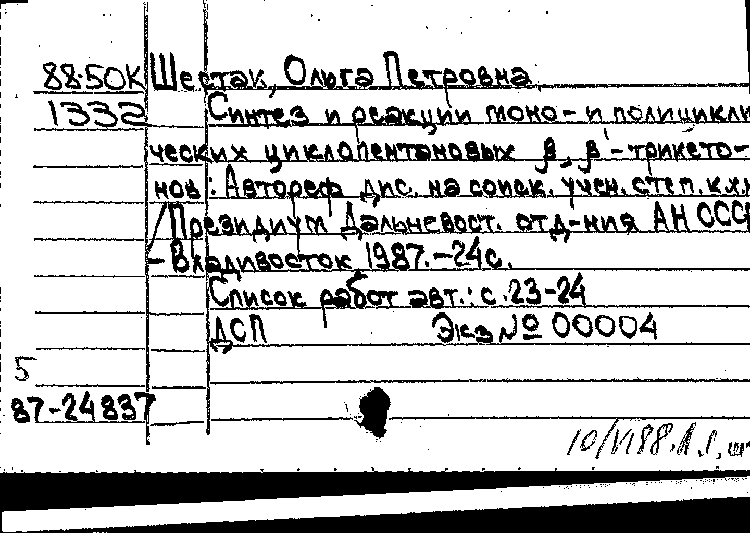 88-50К Шестак, Ольга Петровна
1332 Синтез и реакции моно- и полицикли
ческих циклопентановых β, β'-трикето-
нов: Автореф. дис. на соиск. учен. степ. к.х.н
/Президиум Дальневост. отд-ния АН СССР
- Владивосток, 1987.-24с.
Список работ авт.: с. 23-24
ДСП Экз № 00004
5
87-24837
10/VI88.